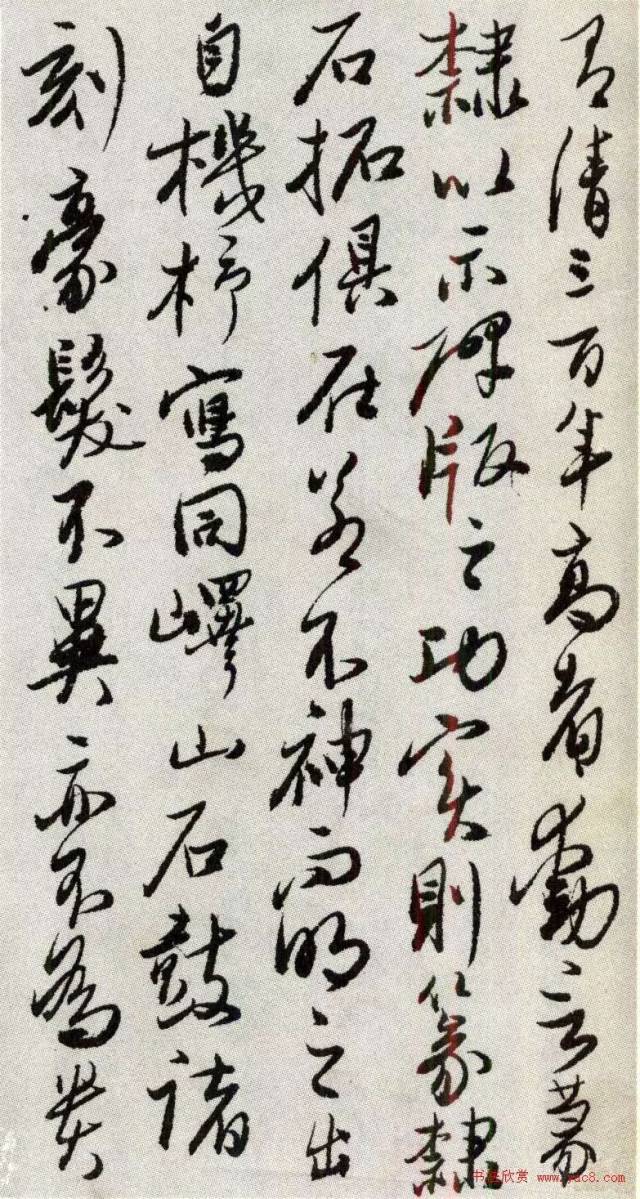 有清三百年高者動言篆
隸以示碑版之功实則篆隸
石拓俱在若不神而明之出
自機杼寫同嶧山石鼓諸
刻豪髮不異亦不為貴
书法欣赏 www.yac8.com